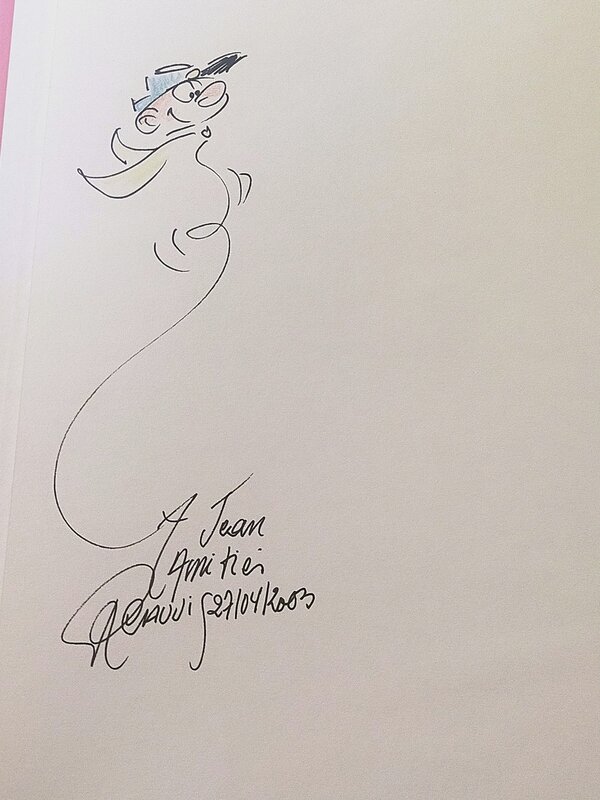 A Jean
Amitiés
27/04/2003